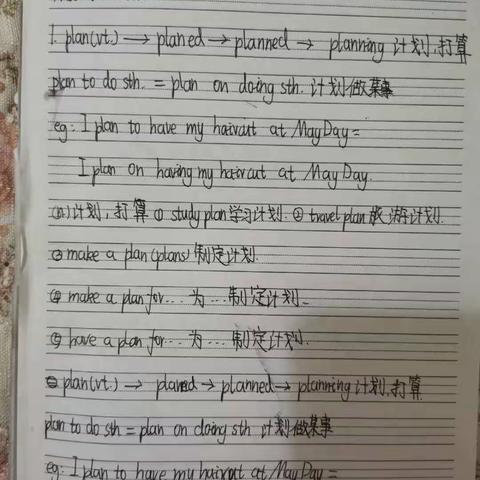 1. plan(vt.) → planed → planned → planning 计划,打算
plan to do sth. = plan on doing sth. 计划做某事
eg: I plan to have my haircut at May Day =
I plan on having my haircut at May Day.
(n.)计划, 打算 ① study plan 学习计划. ② travel plan 旅游计划.
③ make a plan (plans) 制定计划.
④ make a plan for... 为...制定计划.
⑤ have a plan for... 为...制定计划.
plan(vt.) → planed → planned → planning 计划,打算
plan to do sth = plan on doing sth 计划做某事
eg: I plan to have my haircut at May Day =